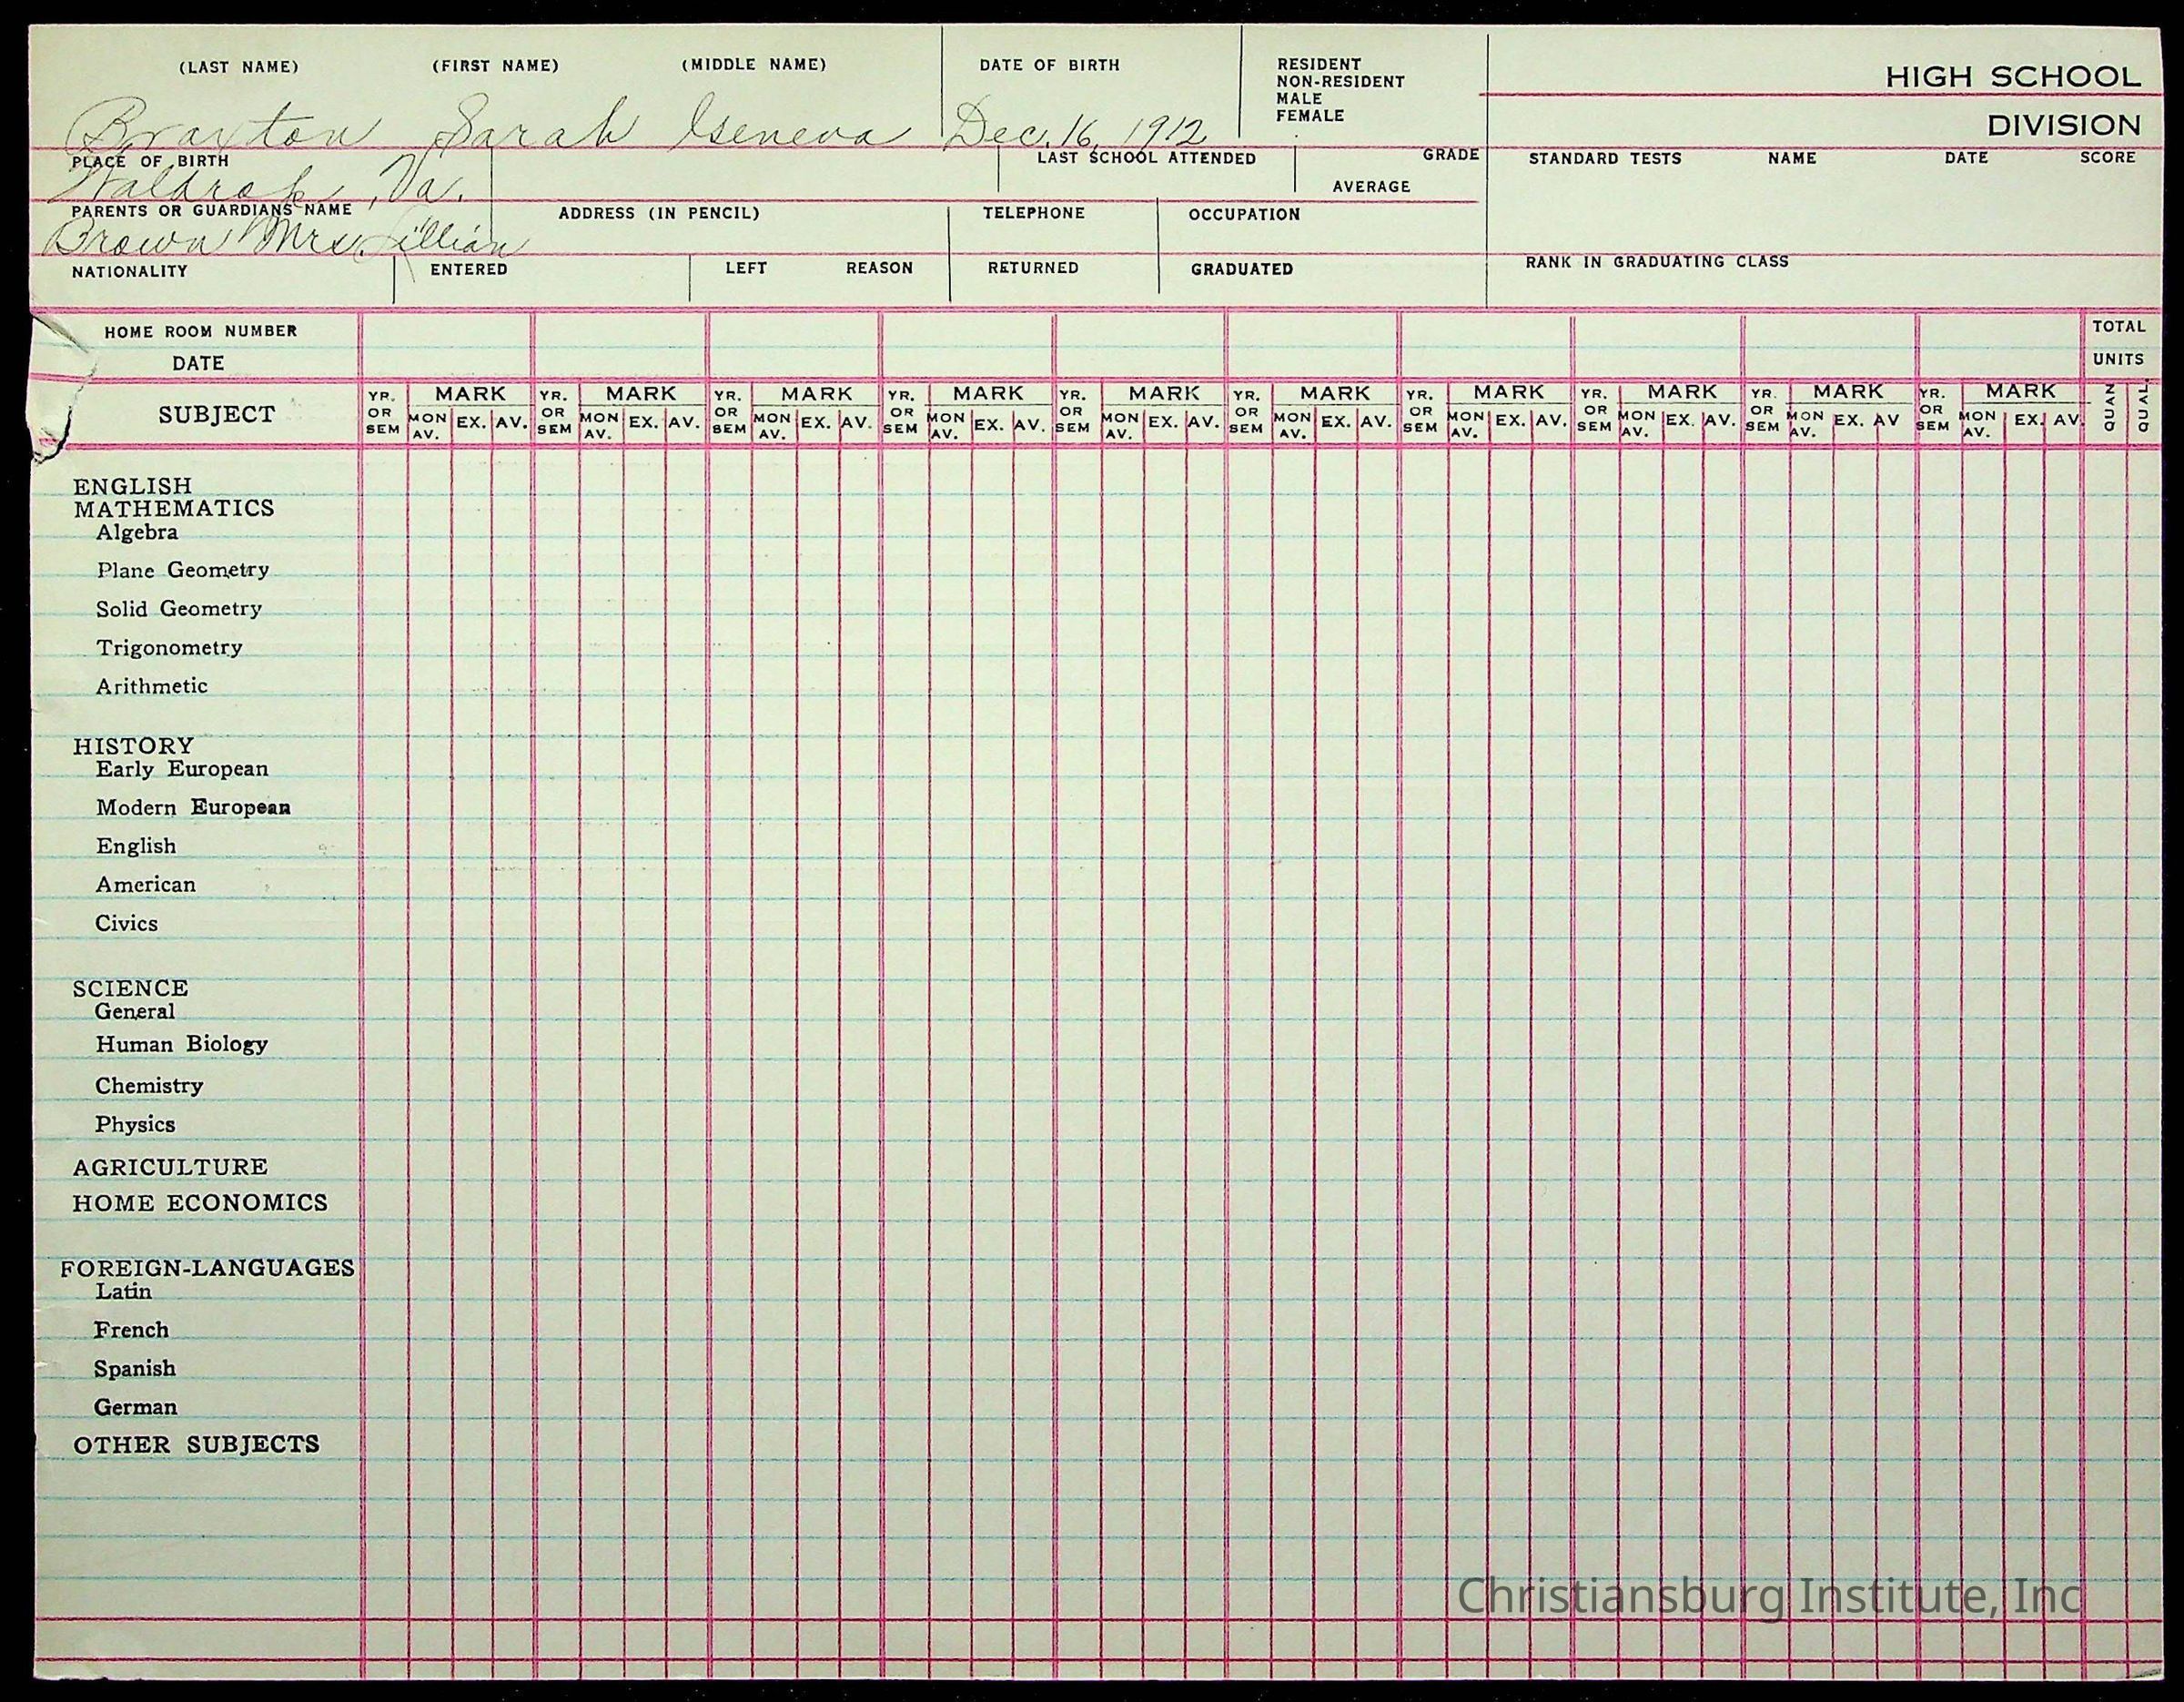 (LAST NAME) (FIRST NAME) (MIDDLE NAME) DATE OF BIRTH RESIDENT
NON-RESIDENT
MALE
FEMALE
HIGH SCHOOL
DIVISION
Braxton Sarah Geneva Dec. 16, 1912
PLACE OF BIRTH LAST SCHOOL ATTENDED GRADE STANDARD TESTS NAME DATE SCORE
Waldrop, Va. AVERAGE
PARENTS OR GUARDIANS NAME ADDRESS (IN PENCIL) TELEPHONE OCCUPATION
Brown Mrs. Lillian
NATIONALITY ENTERED LEFT REASON RETURNED GRADUATED RANK IN GRADUATING CLASS
HOME ROOM NUMBER TOTAL
DATE UNITS
SUBJECT YR. OR SEM MARK MON AV. EX. AV. YR. OR SEM MARK MON AV. EX. AV. YR. OR SEM MARK MON AV. EX. AV. YR. OR SEM MARK MON AV. EX. AV. YR. OR SEM MARK MON AV. EX. AV. YR. OR SEM MARK MON AV. EX. AV. YR. OR SEM MARK MON AV. EX. AV. YR. OR SEM MARK MON AV. EX. AV. YR. OR SEM MARK MON AV. EX. AV YR. OR SEM MARK MON AV. EX. AV. QUAN QUAL.
ENGLISH
MATHEMATICS
Algebra
Plane Geometry
Solid Geometry
Trigonometry
Arithmetic
HISTORY
Early European
Modern European
English
American
Civics
SCIENCE
General
Human Biology
Chemistry
Physics
AGRICULTURE
HOME ECONOMICS
FOREIGN-LANGUAGES
Latin
French
Spanish
German
OTHER SUBJECTS
Christiansburg Institute, Inc